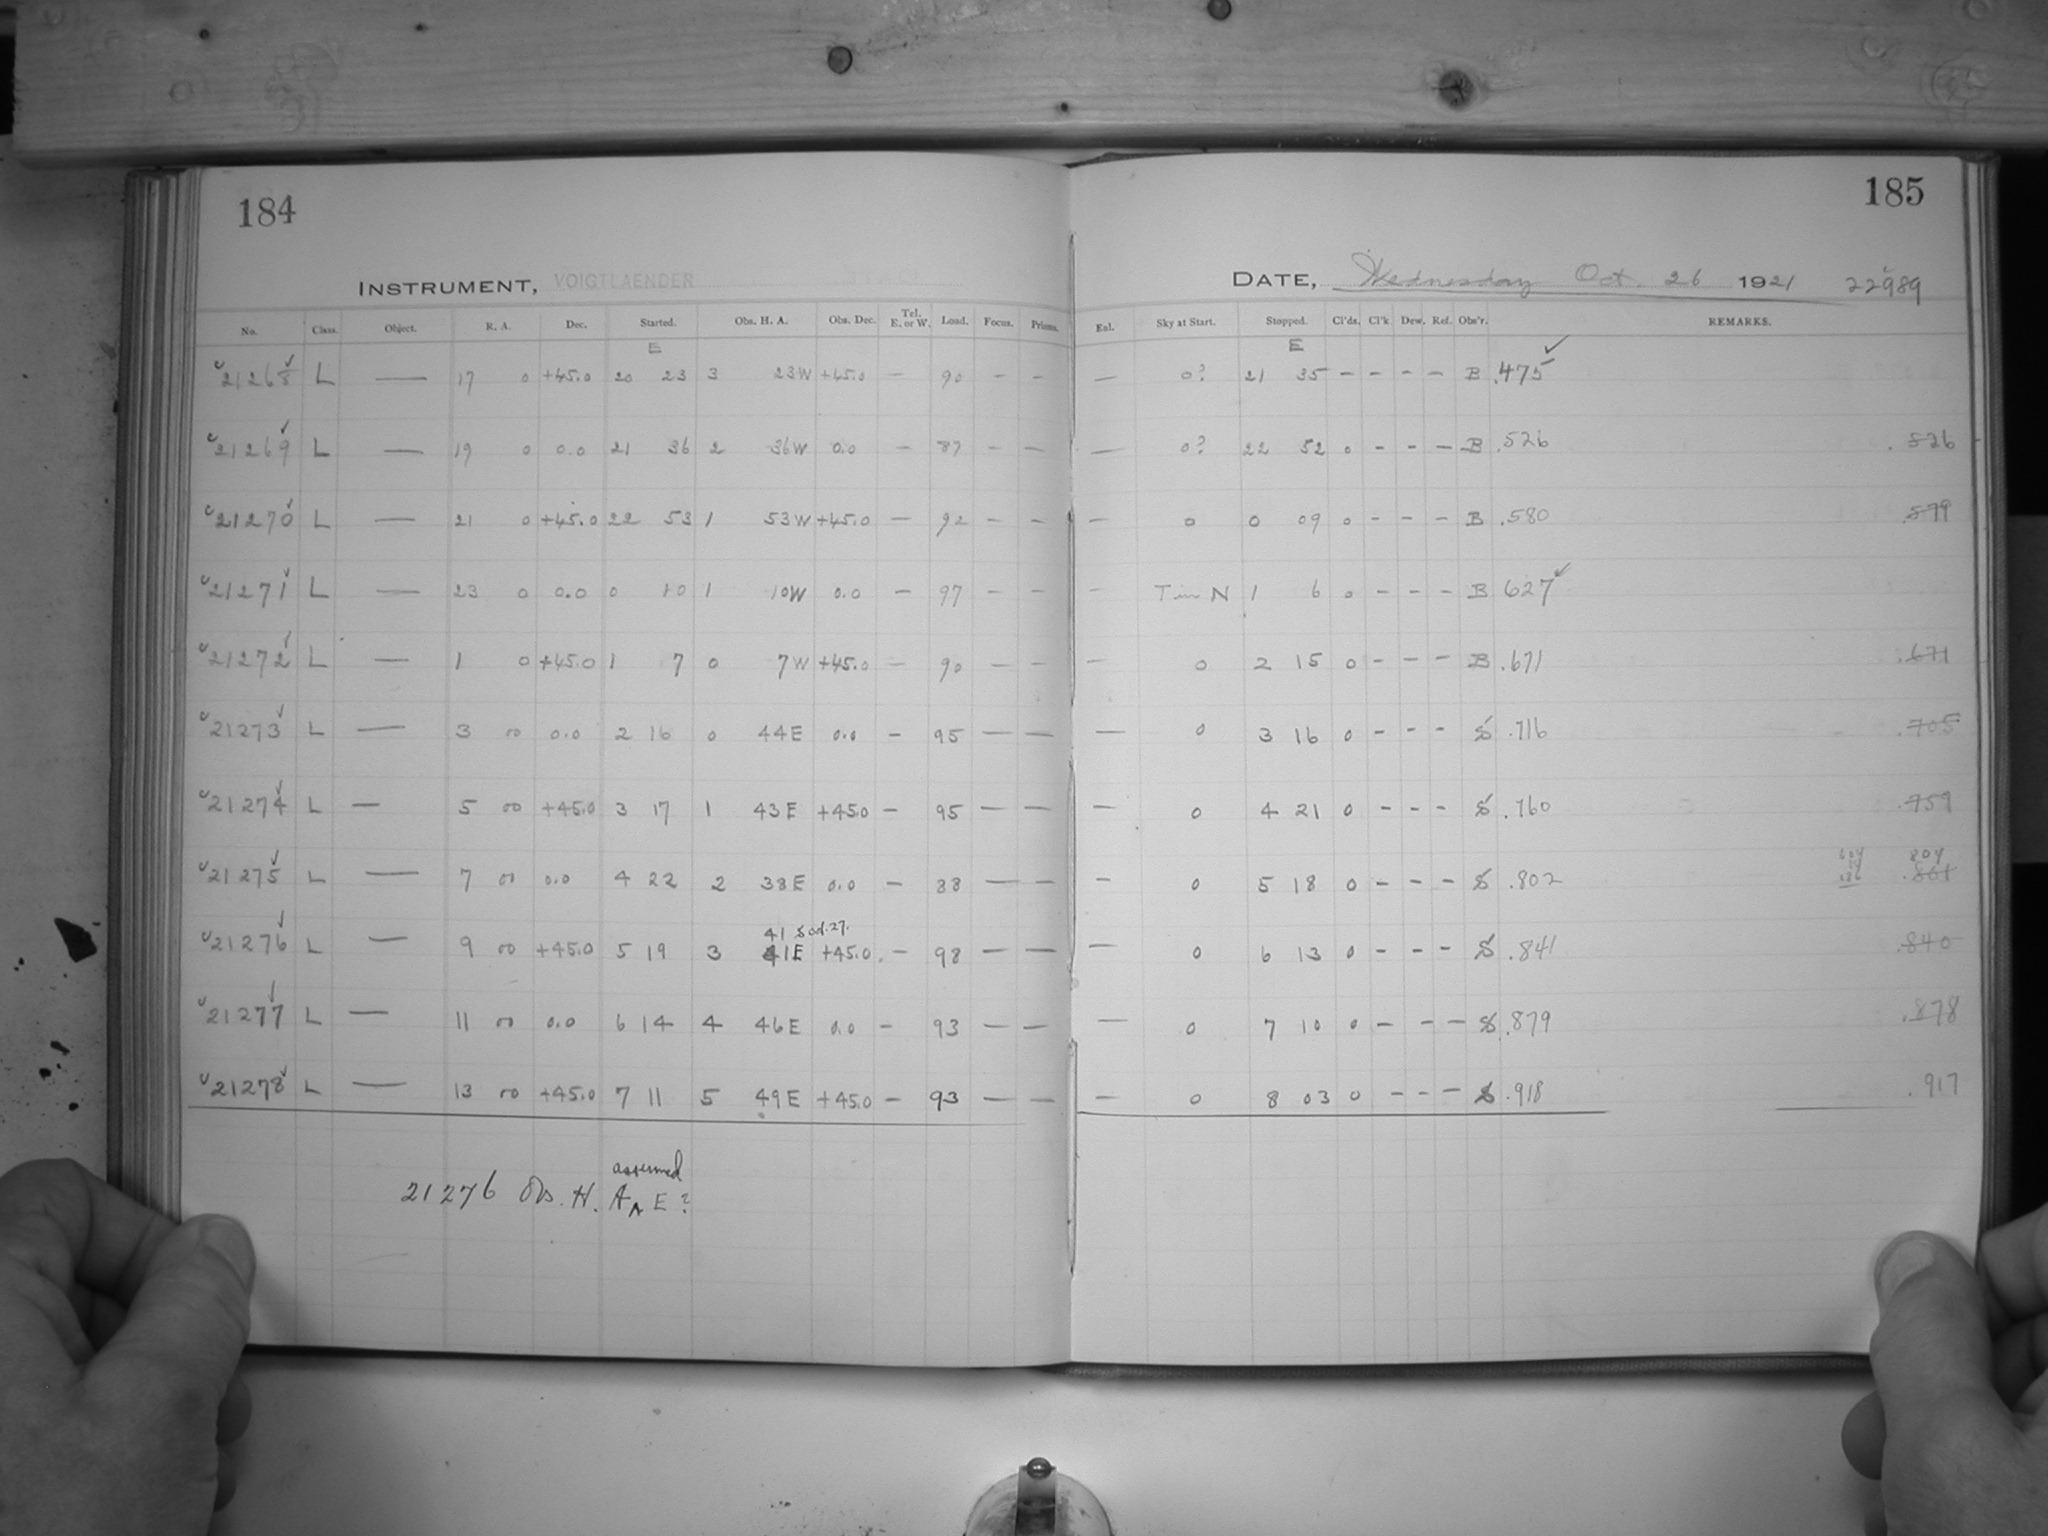 184
INSTRUMENT, VOIGTLAENDER
No. Class. Object. R. A. Dec. Started. Obs. H. A. Obs. Dec. Tel. E. or W. Load. Focus. Prisms.
E
21268 L — 17 0 +45.0 20 23 3 23W +45.0 — 90 – –
21269 L — 19 0 0.0 21 36 2 36W 0.0 — 87 – —
21270 L — 21 0 +45.0 22 53 1 53W +45.0 — 92 – –
21271 L — 23 0 0.0 0 10 1 10W 0.0 — 97 – –
21272 L — 1 0 +45.0 1 7 0 7W +45.0 — 90 – –
21273 L — 3 00 0.0 2 16 0 44E 0.0 – 95 — —
21274 L — 5 00 +45.0 3 17 1 43E +45.0 – 95 — —
21275 L — 7 00 0.0 4 22 2 38E 0.0 – 88 — —
41 S Oct. 27.
21276 L — 9 00 +45.0 5 19 3 41E +45.0. – 98 — —
21277 L — 11 00 0.0 6 14 4 46E 0.0 – 93 — —
21278 L — 13 00 +45.0 7 11 5 49E +45.0 – 93 — —
assumed
21276 Obs. H. A ^ E?
185
DATE, Wednesday Oct. 26 1921 22989
Enl. Sky at Start. Stopped. Cl'ds. Cl'k. Dew. Ref. Obs'r. REMARKS.
E
— 0? 21 35 – – – – B .475 ✓
— 0? 22 52 0 – – – B .526 .526
– 0 0 09 0 – – – B .580 .579
– T in N 1 6 0 – – – B 627 ✓
— 0 2 15 0 – – – B .671 .671
— 0 3 16 0 – – – S .716 .705
— 0 4 21 0 – – – S .760 .759
804
– 0 5 18 0 – – – S .802 .861
— 0 6 13 0 – – – S .841 .840
— 0 7 10 0 – – – S .879 .878
— 0 8 03 0 – – – S .918 .917